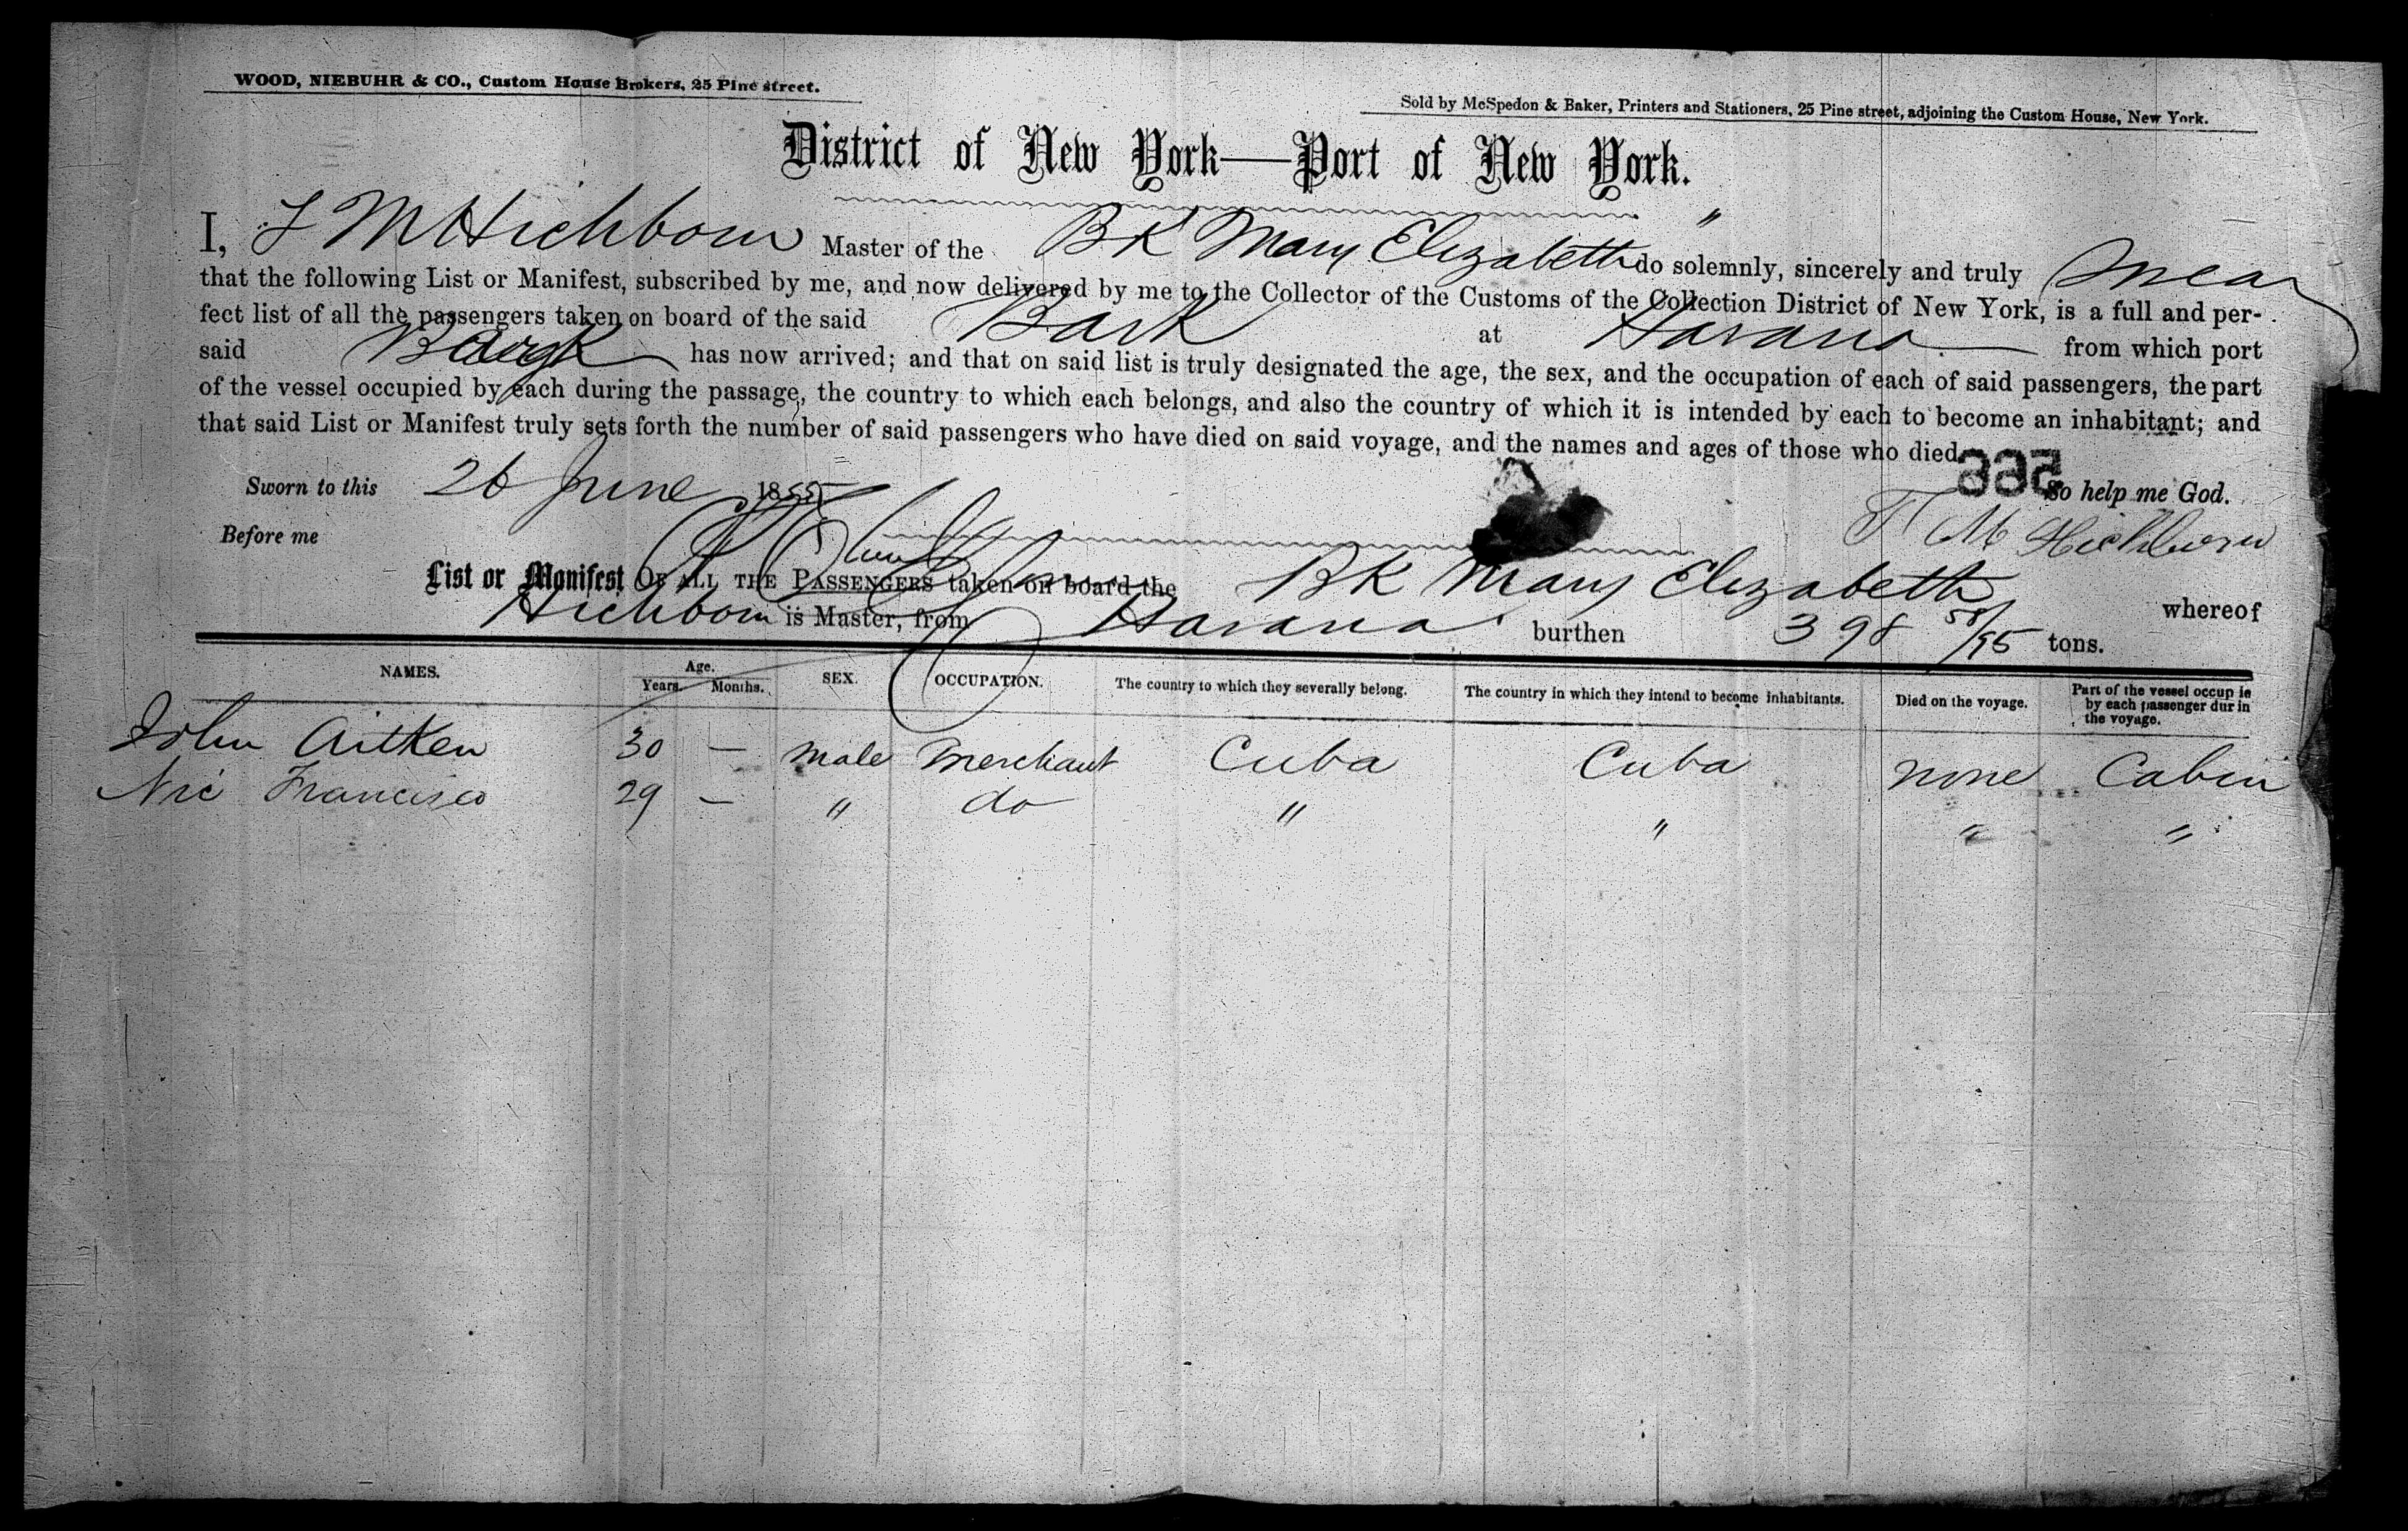 WOOD, NIEBUHR & CO., Custom House Brokers, 25 Pine street.
Sold by McSpedon & Baker, Printers and Stationers, 25 Pine street, adjoining the Custom House, New York.
District of New York—Port of New York.
I, T M Hichborn Master of the BK Mary Elizabeth do solemnly, sincerely and truly swear
that the following List or Manifest, subscribed by me, and now delivered by me to the Collector of the Customs of the Collection District of New York, is a full and per-
fect list of all the passengers taken on board of the said Bark at Havana from which port
said Bark has now arrived; and that on said list is truly designated the age, the sex, and the occupation of each of said passengers, the part
of the vessel occupied by each during the passage, the country to which each belongs, and also the country of which it is intended by each to become an inhabitant; and
that said List or Manifest truly sets forth the number of said passengers who have died on said voyage, and the names and ages of those who died.
Sworn to this 26 June 1855 So help me God.
Before me T M Hichborn
List or Manifest OF ALL THE PASSENGERS taken on board the BK Mary Elizabeth whereof
Hichborn is Master, from Havana burthen 398 58/95 tons.
NAMES. Age. Years. Months. SEX. OCCUPATION. The country to which they severally belong. The country in which they intend to become inhabitants. Died on the voyage. Part of the vessel occup ie by each passenger dur in the voyage.
John Aitken 30 — male Merchant Cuba Cuba none Cabin
Nic Francisco 29 — " do " " " "